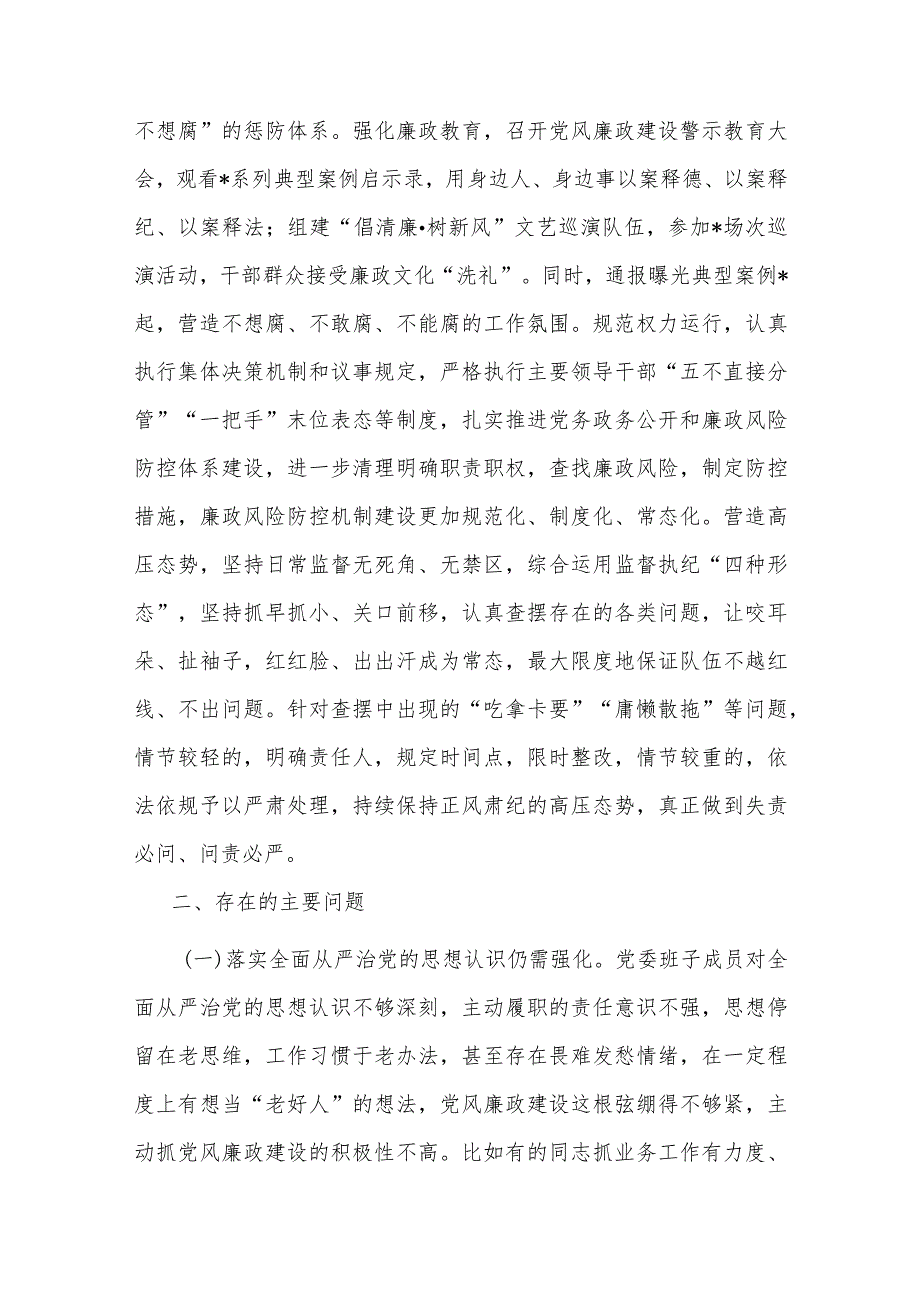 不想腐”的惩防体系。强化廉政教育，召开党风廉政建设警示教育大
会，观看*系列典型案例启示录，用身边人、身边事以案释德、以案释
纪、以案释法；组建“倡清廉•树新风”文艺巡演队伍，参加*场次巡
演活动，干部群众接受廉政文化“洗礼”。同时，通报曝光典型案例*
起，营造不想腐、不敢腐、不能腐的工作氛围。规范权力运行，认真
执行集体决策机制和议事规定，严格执行主要领导干部“五不直接分
管”“一把手”末位表态等制度，扎实推进党务政务公开和廉政风险
防控体系建设，进一步清理明确职责职权，查找廉政风险，制定防控
措施，廉政风险防控机制建设更加规范化、制度化、常态化。营造高
压态势，坚持日常监督无死角、无禁区，综合运用监督执纪“四种形
态”，坚持抓早抓小、关口前移，认真查摆存在的各类问题，让咬耳
朵、扯袖子，红红脸、出出汗成为常态，最大限度地保证队伍不越红
线、不出问题。针对查摆中出现的“吃拿卡要”“庸懒散拖”等问题，
情节较轻的，明确责任人，规定时间点，限时整改，情节较重的，依
法依规予以严肃处理，持续保持正风肃纪的高压态势，真正做到失责
必问、问责必严。
二、存在的主要问题
(一)落实全面从严治党的思想认识仍需强化。党委班子成员对全
面从严治党的思想认识不够深刻，主动履职的责任意识不强，思想停
留在老思维，工作习惯于老办法，甚至存在畏难发愁情绪，在一定程
度上有想当“老好人”的想法，党风廉政建设这根弦绷得不够紧，主
动抓党风廉政建设的积极性不高。比如有的同志抓业务工作有力度、